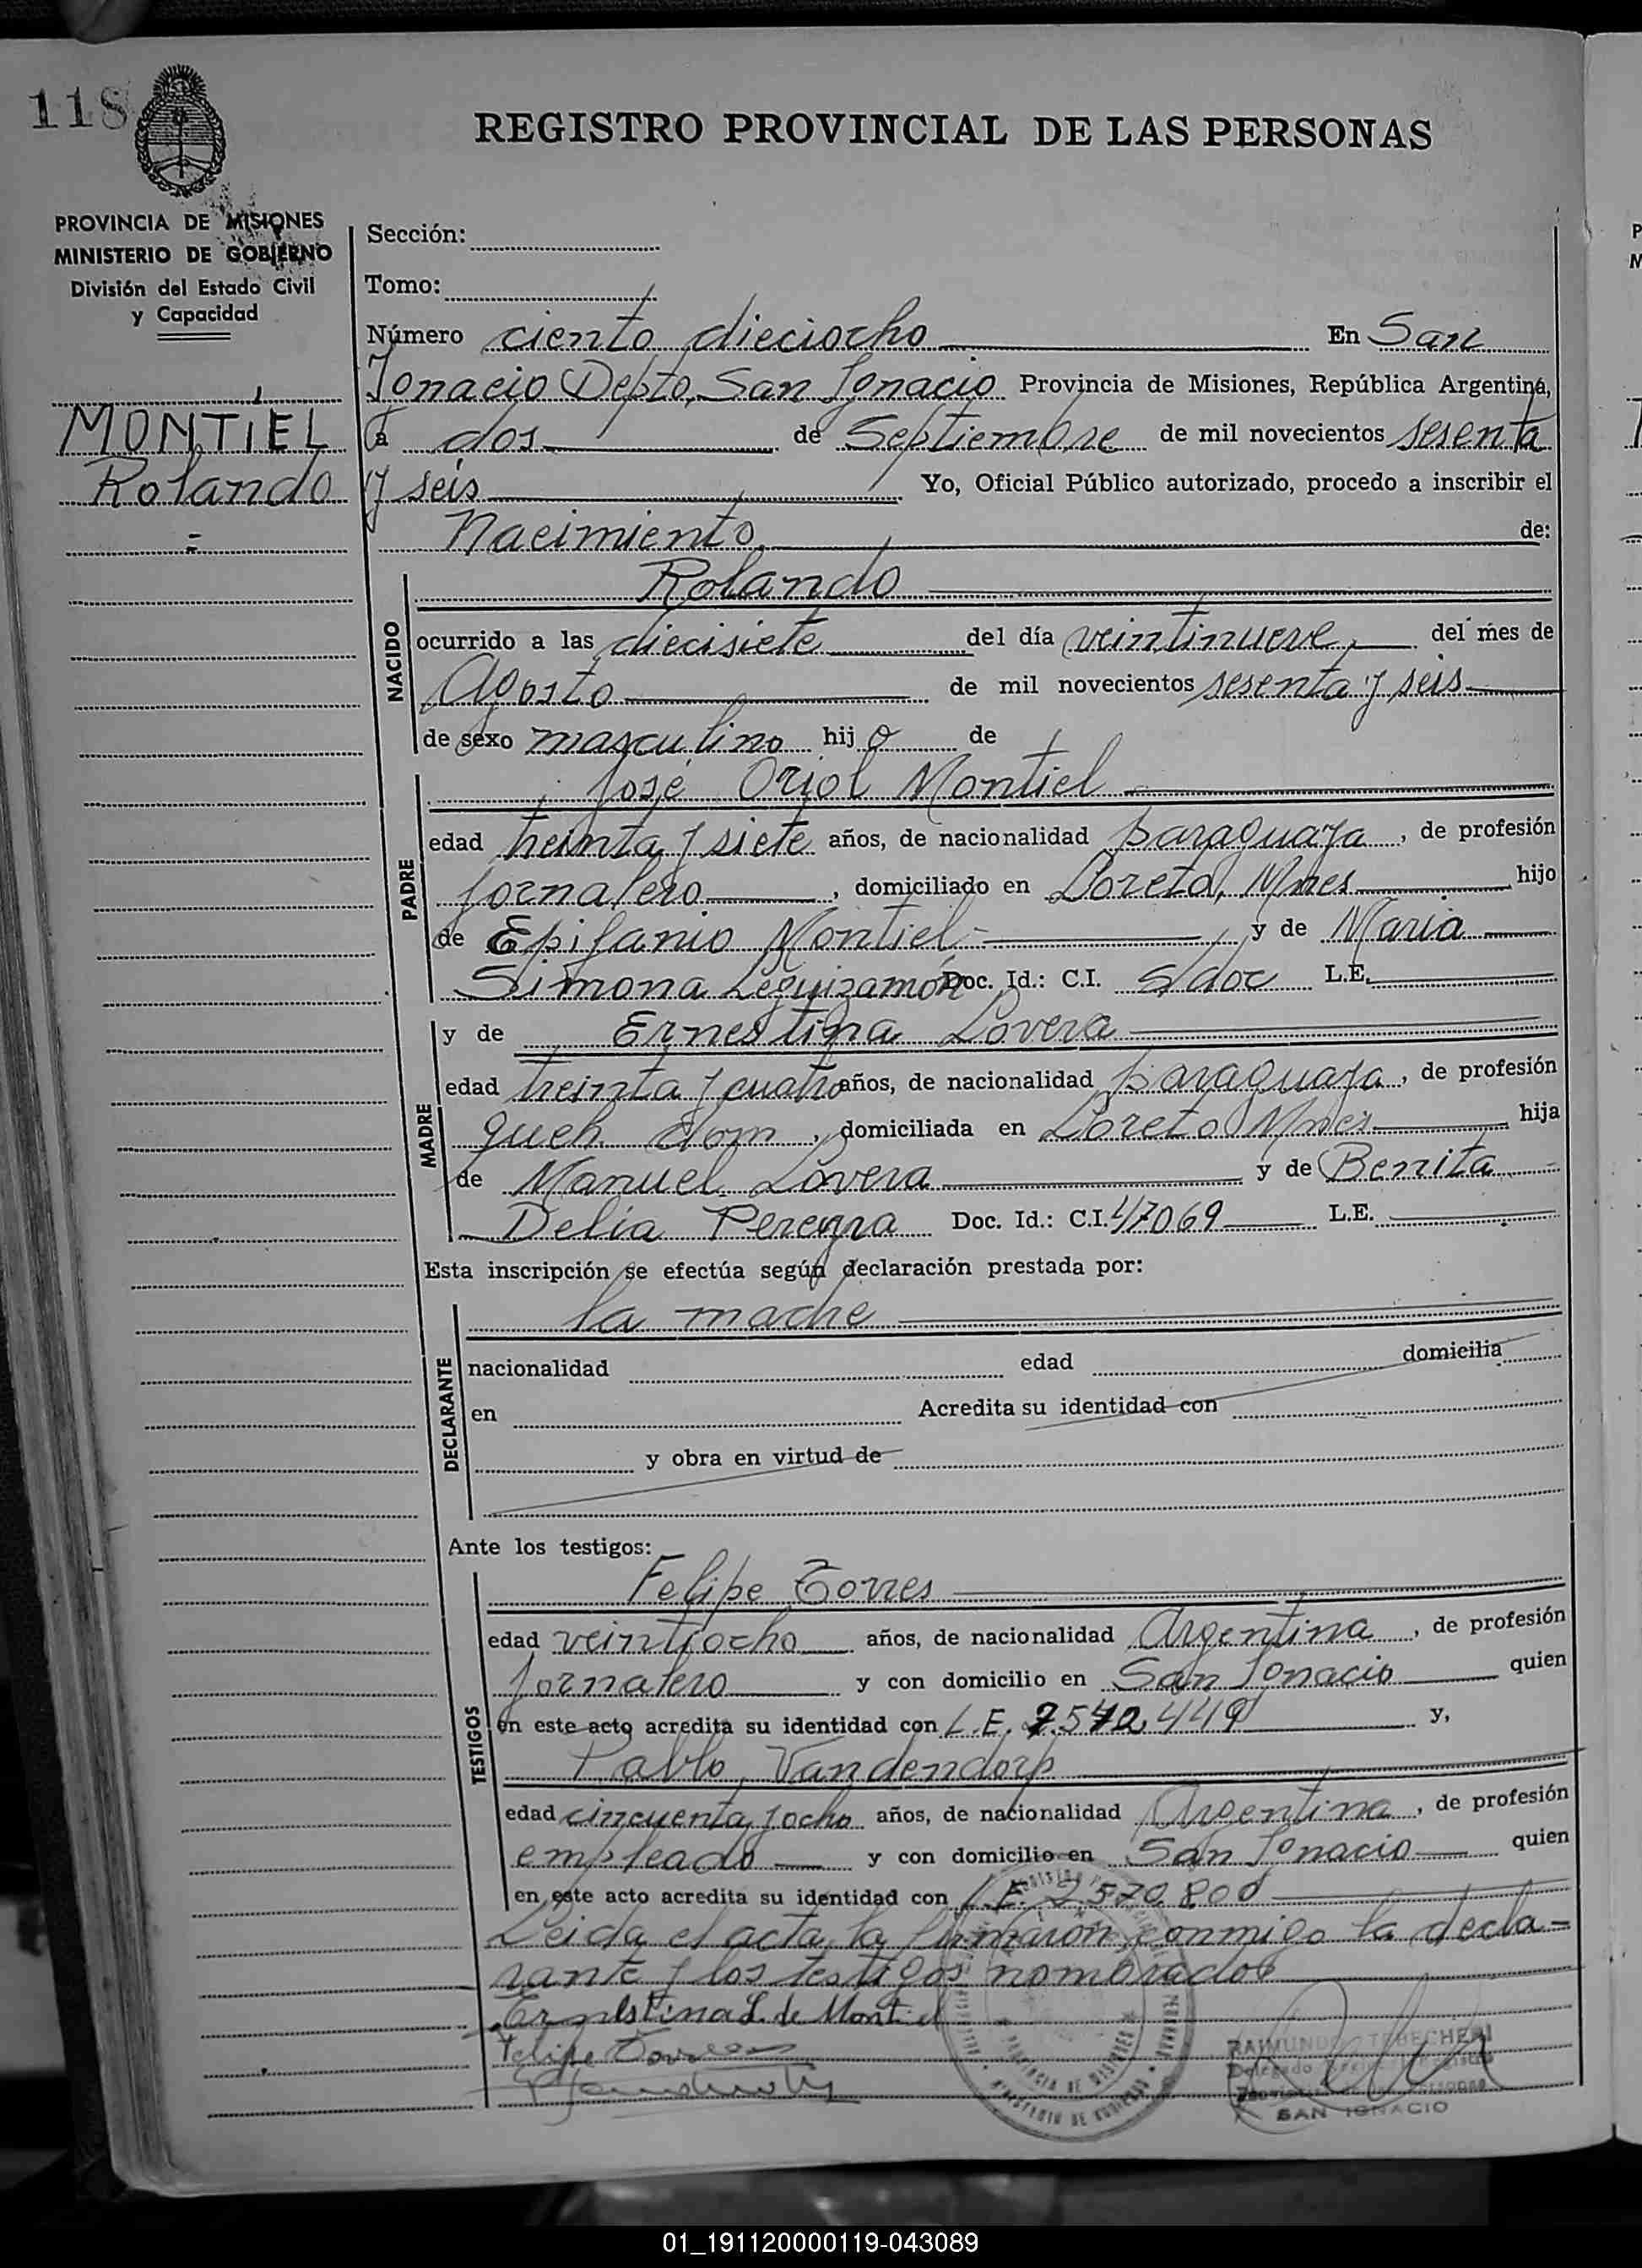 118
REGISTRO PROVINCIAL DE LAS PERSONAS
PROVINCIA DE MISIONES
MINISTERIO DE GOBIERNO
División del Estado Civil
y Capacidad
MONTIEL
Rolando
Sección:
Tomo:
Número ciento dieciocho En San
Ignacio Depto. San Ignacio Provincia de Misiones, República Argentina,
a dos de Septiembre de mil novecientos sesenta
y seis Yo, Oficial Público autorizado, procedo a inscribir el
Nacimiento de:
NACIDO
Rolando
ocurrido a las diecisiete del día veintinueve del mes de
Agosto de mil novecientos sesenta y seis
de sexo masculino hijo de
PADRE
José Oriol Montiel
edad treinta y siete años, de nacionalidad paraguaya, de profesión
jornalero, domiciliado en Loreto, Mnes hijo
de Epifanio Montiel y de Maria
Simona Leguizamón Doc. Id.: C.I. s/doc L.E.
MADRE
y de Ernestina Lovera
edad treinta y cuatro años, de nacionalidad paraguaya, de profesión
queh dom, domiciliada en Loreto Mnes hija
de Manuel Lovera y de Benita
Delia Pereyra Doc. Id.: C.I. 47069 L.E.
Esta inscripción se efectúa según declaración prestada por:
DECLARANTE
la madre
nacionalidad edad domicilia
en Acredita su identidad con
y obra en virtud de
Ante los testigos:
TESTIGOS
Felipe Torres
edad veintiocho años, de nacionalidad Argentina, de profesión
jornalero y con domicilio en San Ignacio quien
en este acto acredita su identidad con L.E. 7.542.449 y,
Pablo Vandendorp
edad cincuenta y ocho años, de nacionalidad Argentina, de profesión
empleado y con domicilio en San Ignacio quien
en este acto acredita su identidad con L.E. 2.570.800
Leida el acta, la firmaron conmigo la decla-
rante y los testigos nombrados
Ernestina L. de Montiel
Felipe Torres
PROVINCIA DE MISIONES
MINISTERIO DE GOBIERNO
SAN IGNACIO
01_191120000119-043089